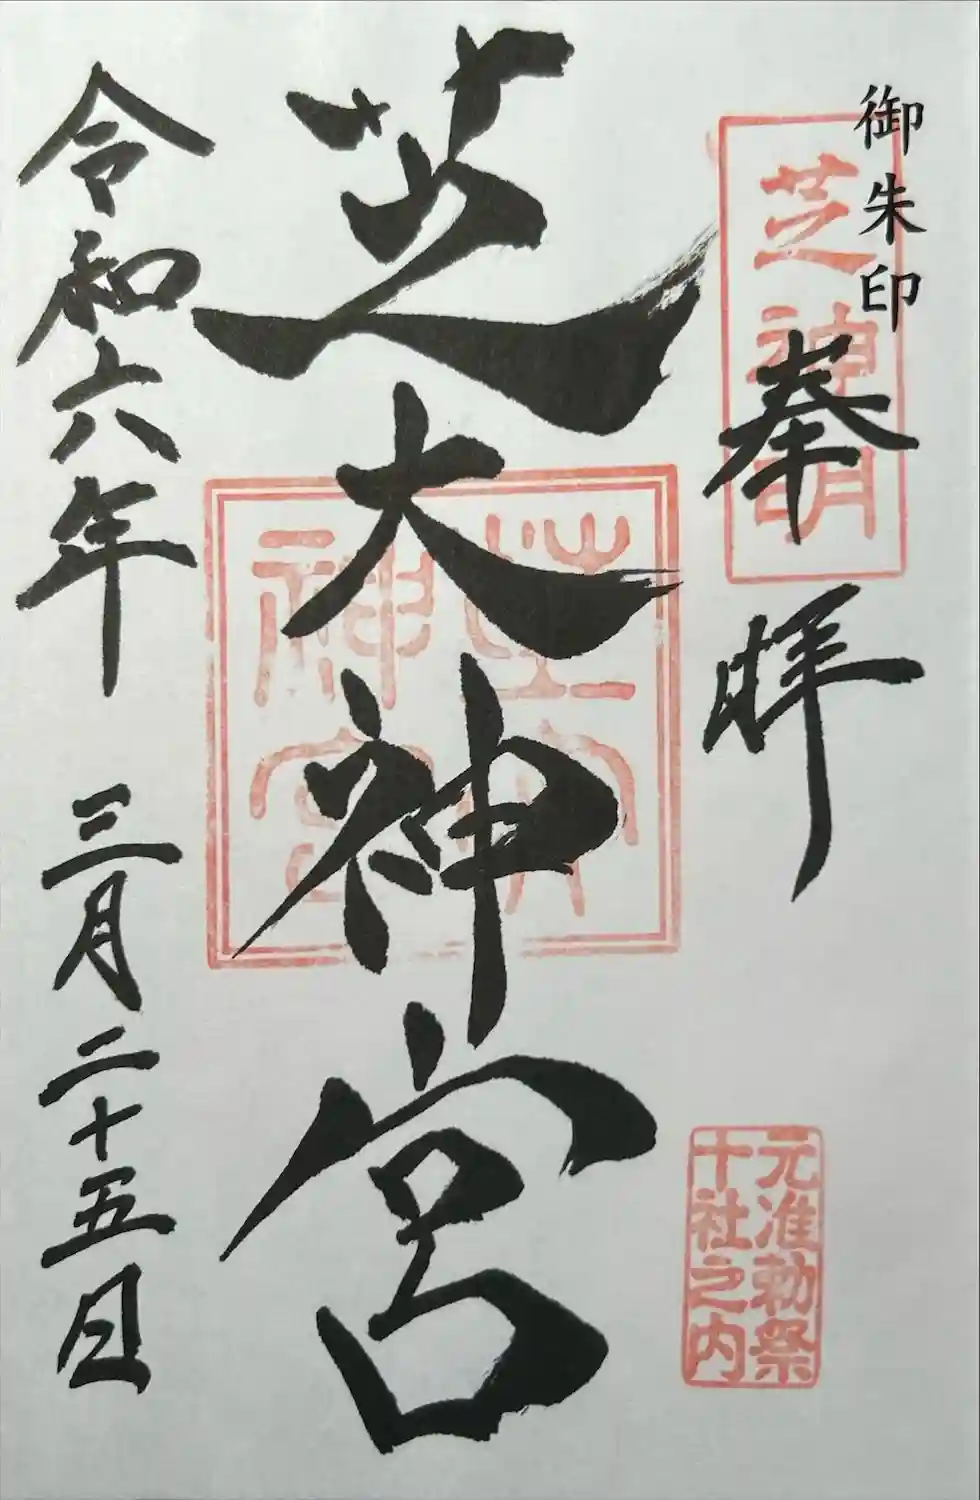 御朱印
芝神明
奉拝
元准勅祭
十社之内
芝大神宮
芝大
神宮
令和六年 三月二十五日